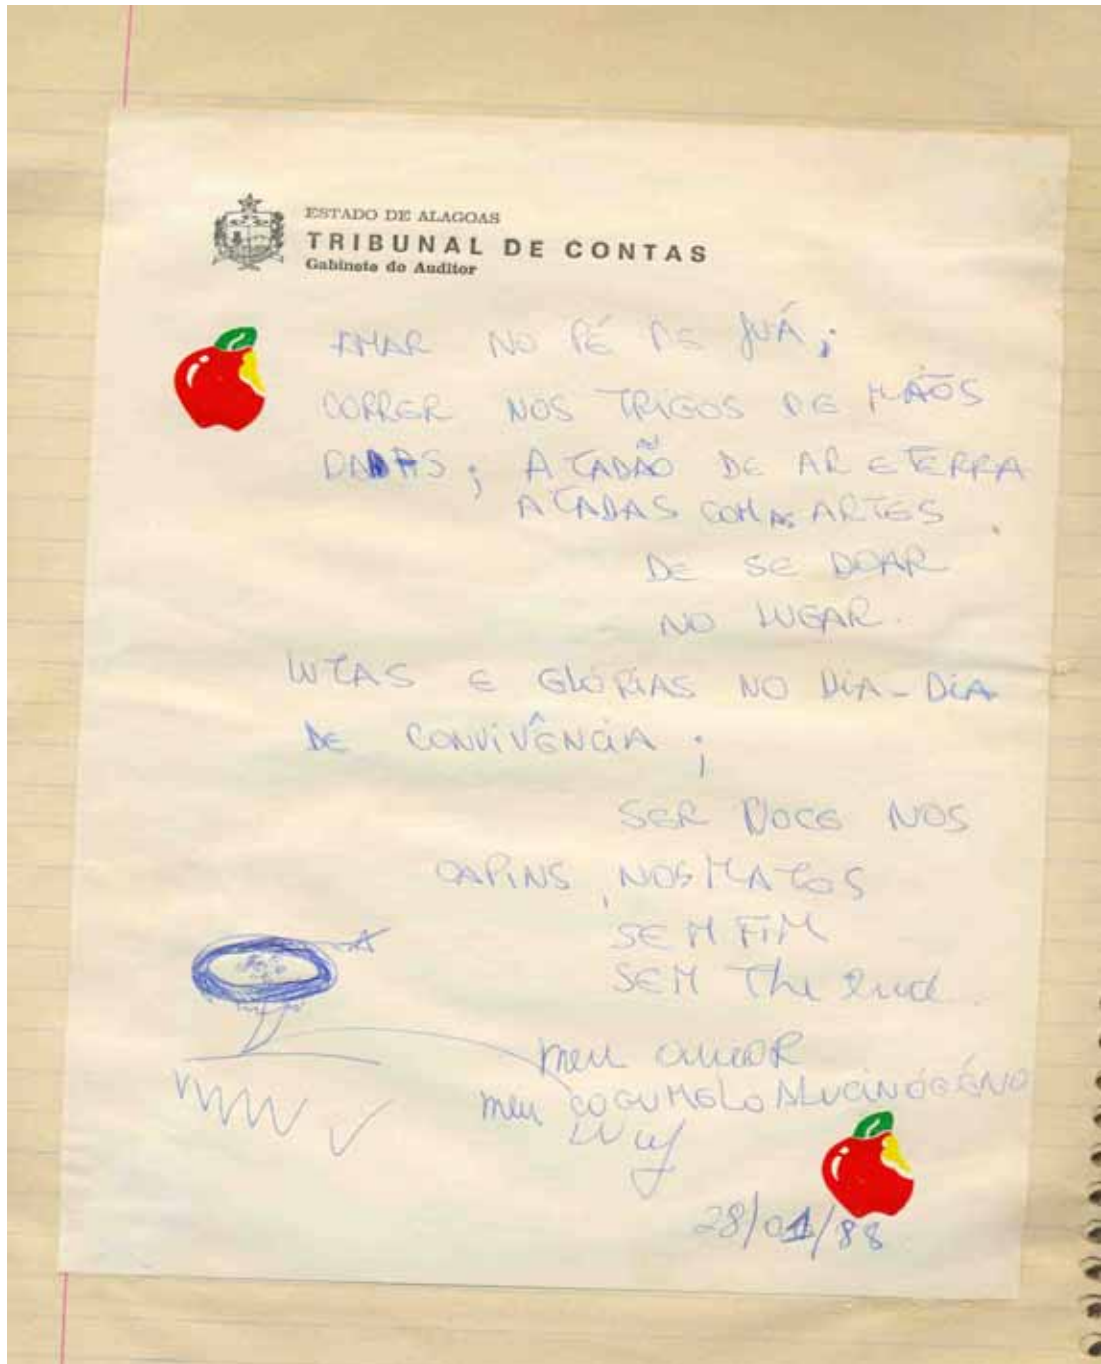 ESTADO DE ALAGOAS
TRIBUNAL DE CONTAS
Gabinete do Auditor
AMAR NO PÉ DE JUÁ;
CORRER NOS TRIGOS DE MÃOS
DADAS; A TADÃO DE AR E TERRA
ATADAS COM AS ARTES.
DE SE DOAR
NO LUGAR.
LUTAS E GLÓRIAS NO DIA-DIA
DE CONVIVÊNCIA;
SER DOCE NOS
CAPINS, NOS MATOS
SEM FIM
SEM The End.
meu amor
meu COGUMELO ALUCINÓGÉNO
Lucy
28/01/88